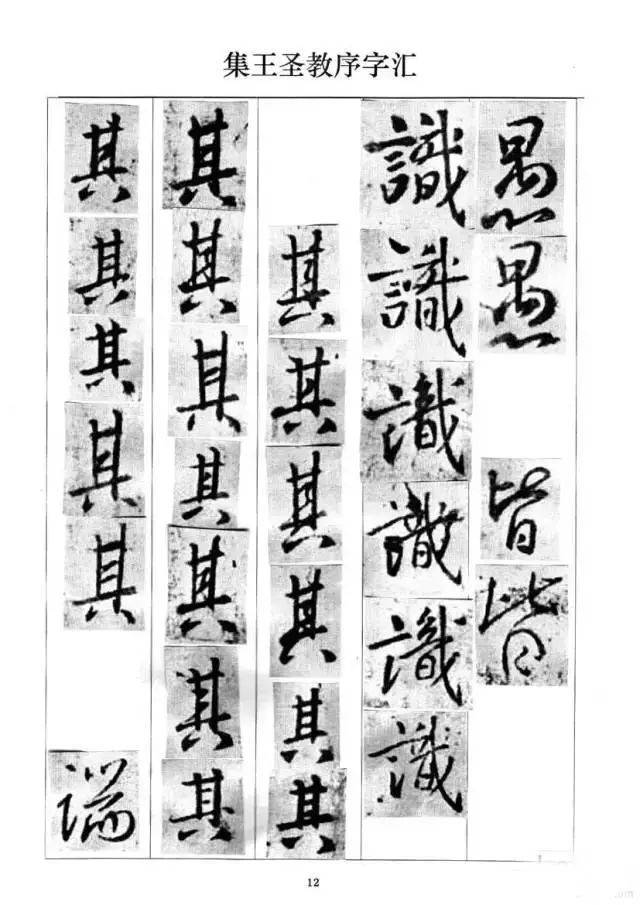 集王圣教序字汇
愚愚皆皆
識識識識識識
其其其其其其
其其其其其其其
其其其其其端
12